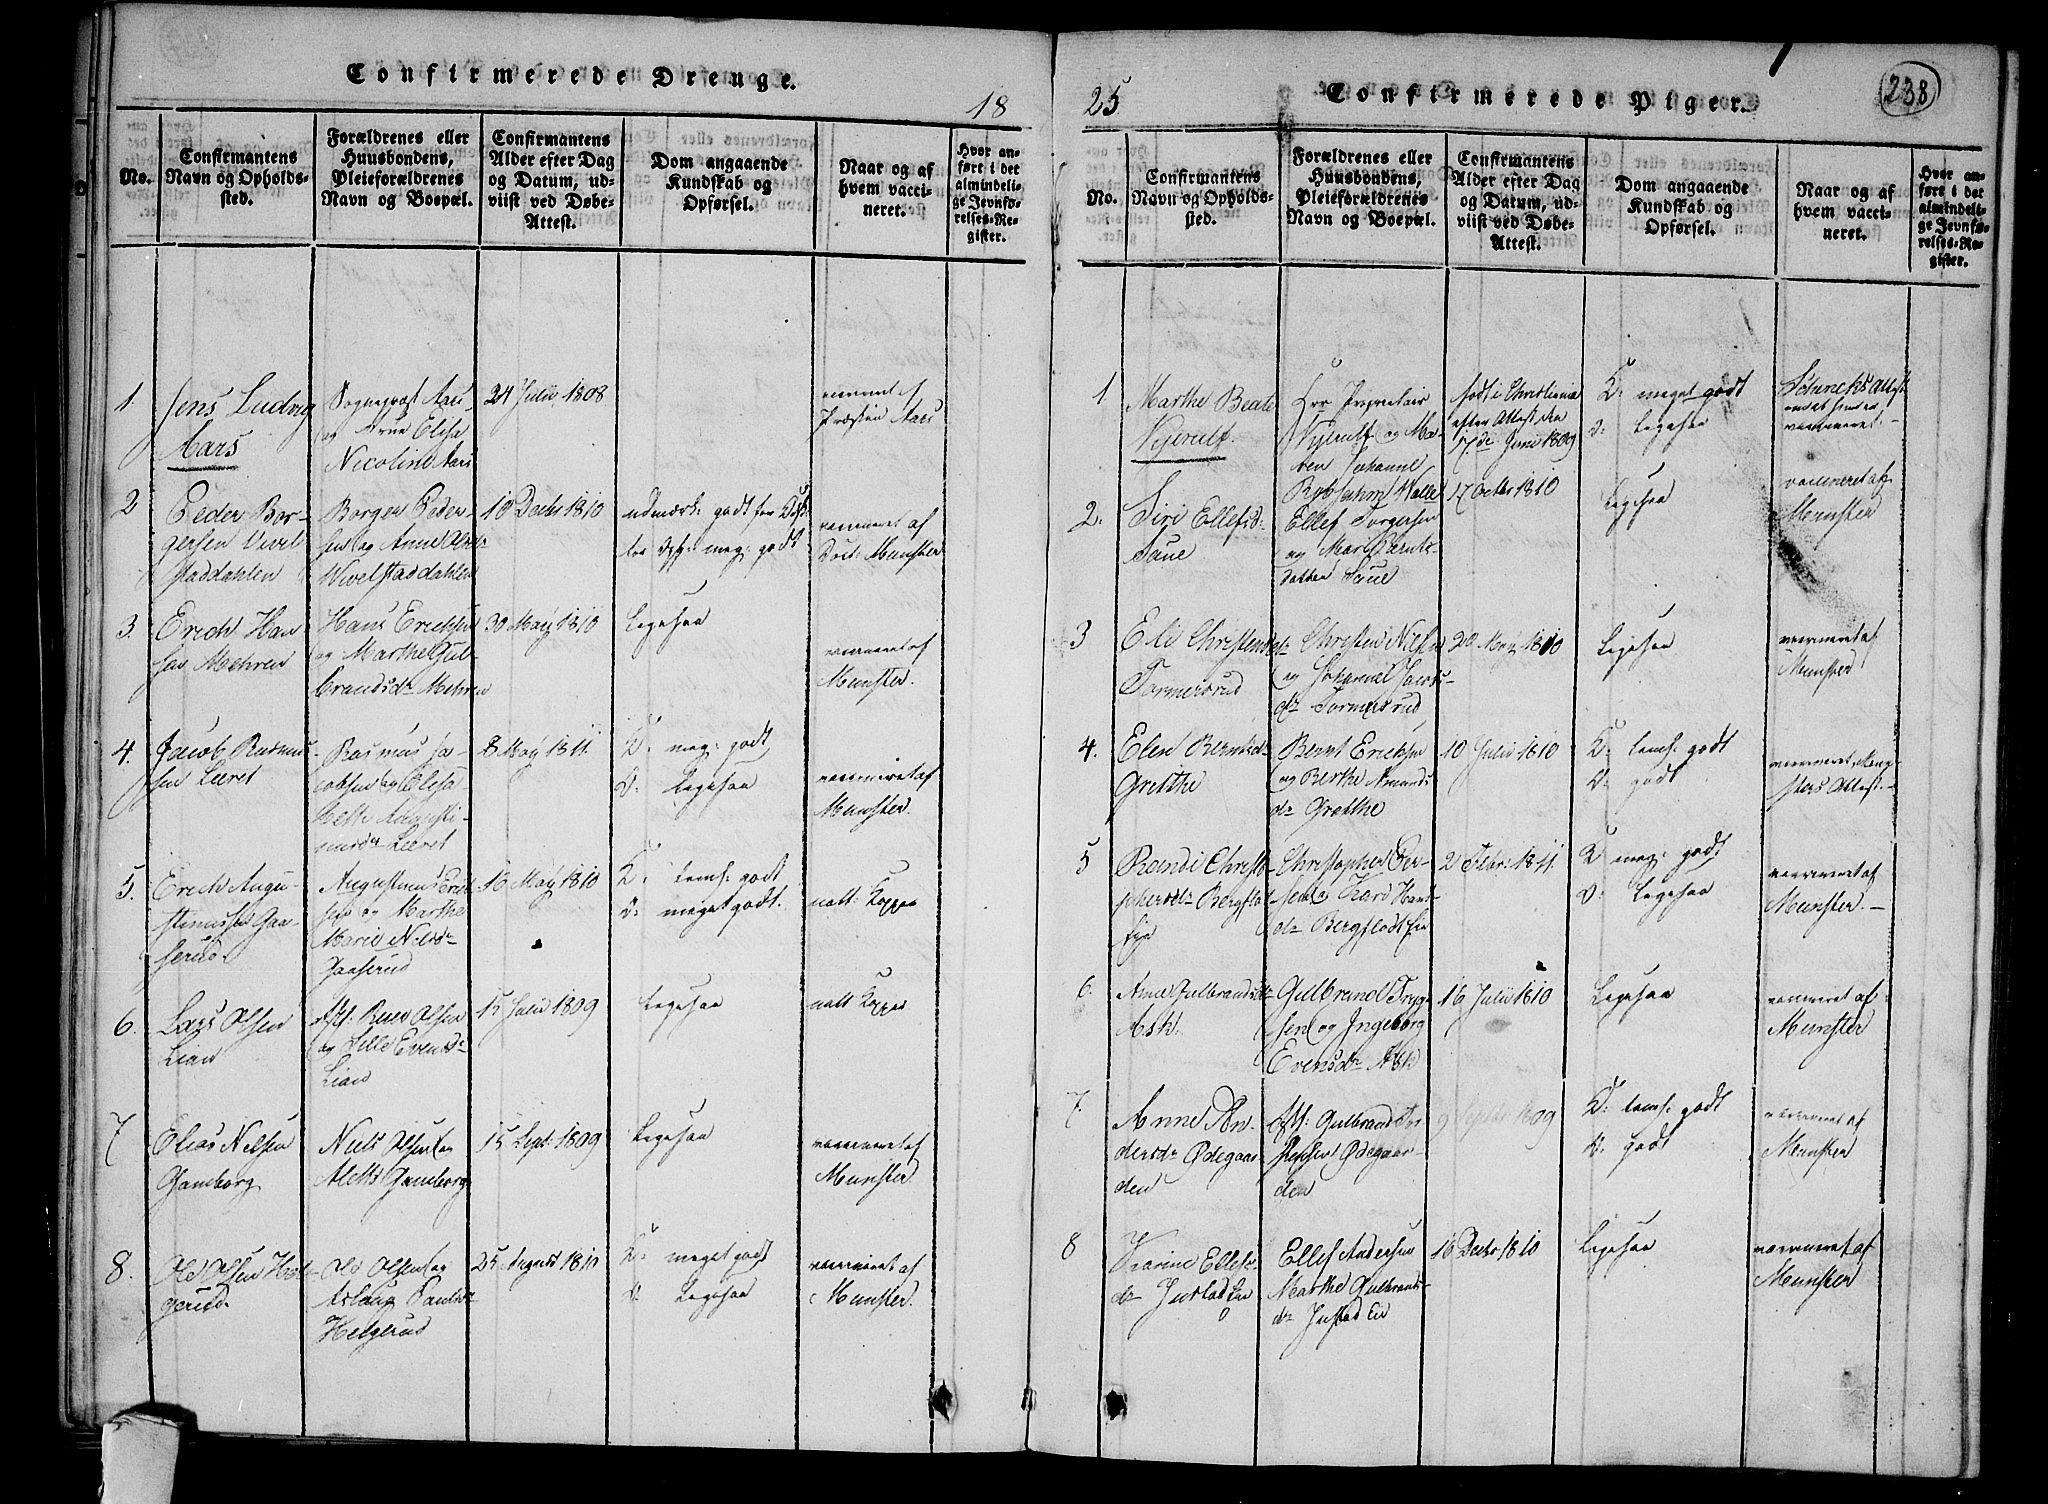 Confirmerede Drenge.
18
No.
Confirmantens
Navn og Opholds-
sted.
Forældrenes eller
Huusbondens,
Pleieforældrenes
Navn og Boepæl.
Confirmantens
Alder efter Dag
og Datum, ud-
viist ved Døbe-
Attest.
Dom angaaende
Kundskab og
Opførsel.
Naar og af
hvem vacci-
neret.
Hvor an-
ført i det
almindeli-
ge Jevnfø-
relses-Re-
gister.
1.
Jens Ludvig
Aars
Sognepræst Aars
og Frue Elisa
Nicoline Aars
24 Julii 1808
vaccineret af
Præsten Aars
2
Peder Bor-
gersen Vivel-
staddahlen
Borger Peder-
sen og Anne
Wivelstaddahlen
10 Decbr 1810
udmærk: godt
meg: godt
vaccineret af
Doct: Munster
3.
Erich Han
sen Mehren
Hans Ericksen
og Marthe Gul-
brandsdr Mehren
30 May 1810
Ligesaa
vaccineret af
Munster.
4.
Jacob Rasmus-
sen Leeret
Rasmus Ja-
cobsen og Olea
Leeret
8 May 1811.
K: meg: godt
O: Ligesaa
vaccineret af
Munster.
5.
Erich Augu-
stinussen Gaa-
serud.
Augustinus Erich
sen og Marthe
Marie Nelsdr
Gaaserud
16 May 1810
K: temf: godt
O: meget godt.
natt: Kopper
6.
Lars Olsen
Lian
Afd. Olsen
og Sille Evensdr
Lian
15 Julii 1809
Ligesaa
natt Kopper
7
Elias Nelsen
Gamborg
Niels Olsen og
Alette Gamborg
15 Sept: 1809
Ligesaa
vaccineret af
Munster
8.
Ole Olsen Hel-
gerud.
Ole Olsen og
Aslaug Paulsdr
Helgerud
25 August 1810
K: meget godt
O: Ligesaa
vaccineret af
Munster.
25
Confirmerede Piger.
238
No.
Confirmantens
Navn og Opholds-
sted.
Forældrenes eller
Huusbondens,
Pleieforældrenes
Navn og Boepæl.
Confirmantens
Alder efter Dag
og Datum, ud-
viist ved Døbe-
Attest.
Dom angaaende
Kundskab og
Opførsel.
Naar og af
hvem vacci-
neret.
Hvor an-
ført i det
almindeli-
ge Jevnfø-
relses-Re-
gister.
1
Marthe Beate
Kjerulf.
Hrr Proprietair
Kjerulf og Ma-
Johanne
født i Christiania
efter Attest den
17de Junii 1809
K: meget godt
O: Ligesaa
Attest
vaccineret.
2.
Siri Ellefsd:
Saue
Ellef Torgersen
og Mari Berntz-
datter Saue
17 Octbr 1810
Ligesaa
vaccineret af
Munster
3
Eli Christensdr
Tormesrud
Christen Nielsen
og Johanne Jacobs-
dr Tormesrud
20 May 1810
Ligesaa
vaccineret af
Munster
4.
Elen Berntsdr
Grøtthe
Bernt Ericksen
og Berthe Amunds
dr Grøtthe
10 Julii 1810
K: temf: godt
O: godt
vaccineret, Mun-
sters Attest.
5
Randi Christo-
phersdr Bergflødt
Eje
Christopher Per-
sen og Kari Hans-
dr Bergflødt Eie
2 Febr: 1811.
K meg: godt
O: Ligesaa
vaccineret af
Munster.
6.
Anne Gulbrandsdr
Ask.
Gulbrand Tryg-
sen og Ingeborg
Evensdr Ask
16 Julii 1810
Ligesaa
vaccineret af
Munster
7.
Anne An-
dersdr Ødegaar-
den
Afd: Gulbrand
Ødegaar-
den
9 Septbr 1809
K: temf: godt
O: godt
vaccineret af
Munster
8
Karine Ellefs-
dr Justad Eie
Ellef Andersen
Marthe Gulbrands-
dr Justad Eie
16 Decbr 1810
Ligesaa
vaccineret af
Munster